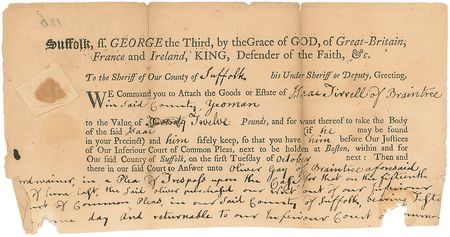 Suffolk, ss. GEORGE the Third, by the Grace of GOD, of Great-Britain,
France and Ireland, KING, Defender of the Faith, &c.
To the Sheriff of Our County of Suffolk his Under Sheriff or Deputy, Greeting.
WE Command you to Attach the Goods or Estate of Isaac Tirrell of Braintree
in Said County Yeoman
to the Value of Twelve Pounds, and for want thereof to take the Body
of the said Isaac (if he may be found
in your Precinct) and him safely keep, so that you have him before Our Justices
of Our Inferiour Court of Common Pleas, next to be holden at Boston, within and for
Our said County of Suffolk, on the first Tuesday of October next: Then and
there in our said Court to Answer unto Oliver Gay of Braintree aforesaid
in a Plea of Trespass upon the Case for that on the fifteenth
of June last, the said Oliver purchased our writ out of our Inferiour
Court of Common Pleas, in our said County of Suffolk, bearing Teste
same day and returnable to our Inferiour Court Common